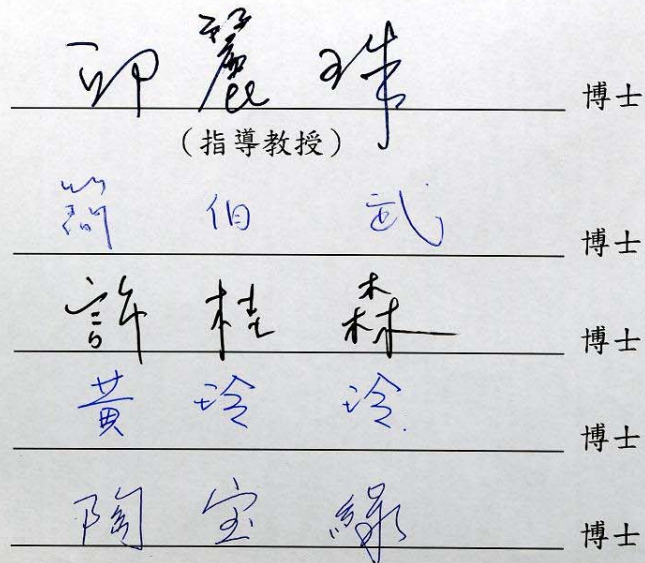 邱麗珠 博士
(指導教授)
簡伯武 博士
許桂森 博士
黃玲玲 博士
陶宝綠 博士